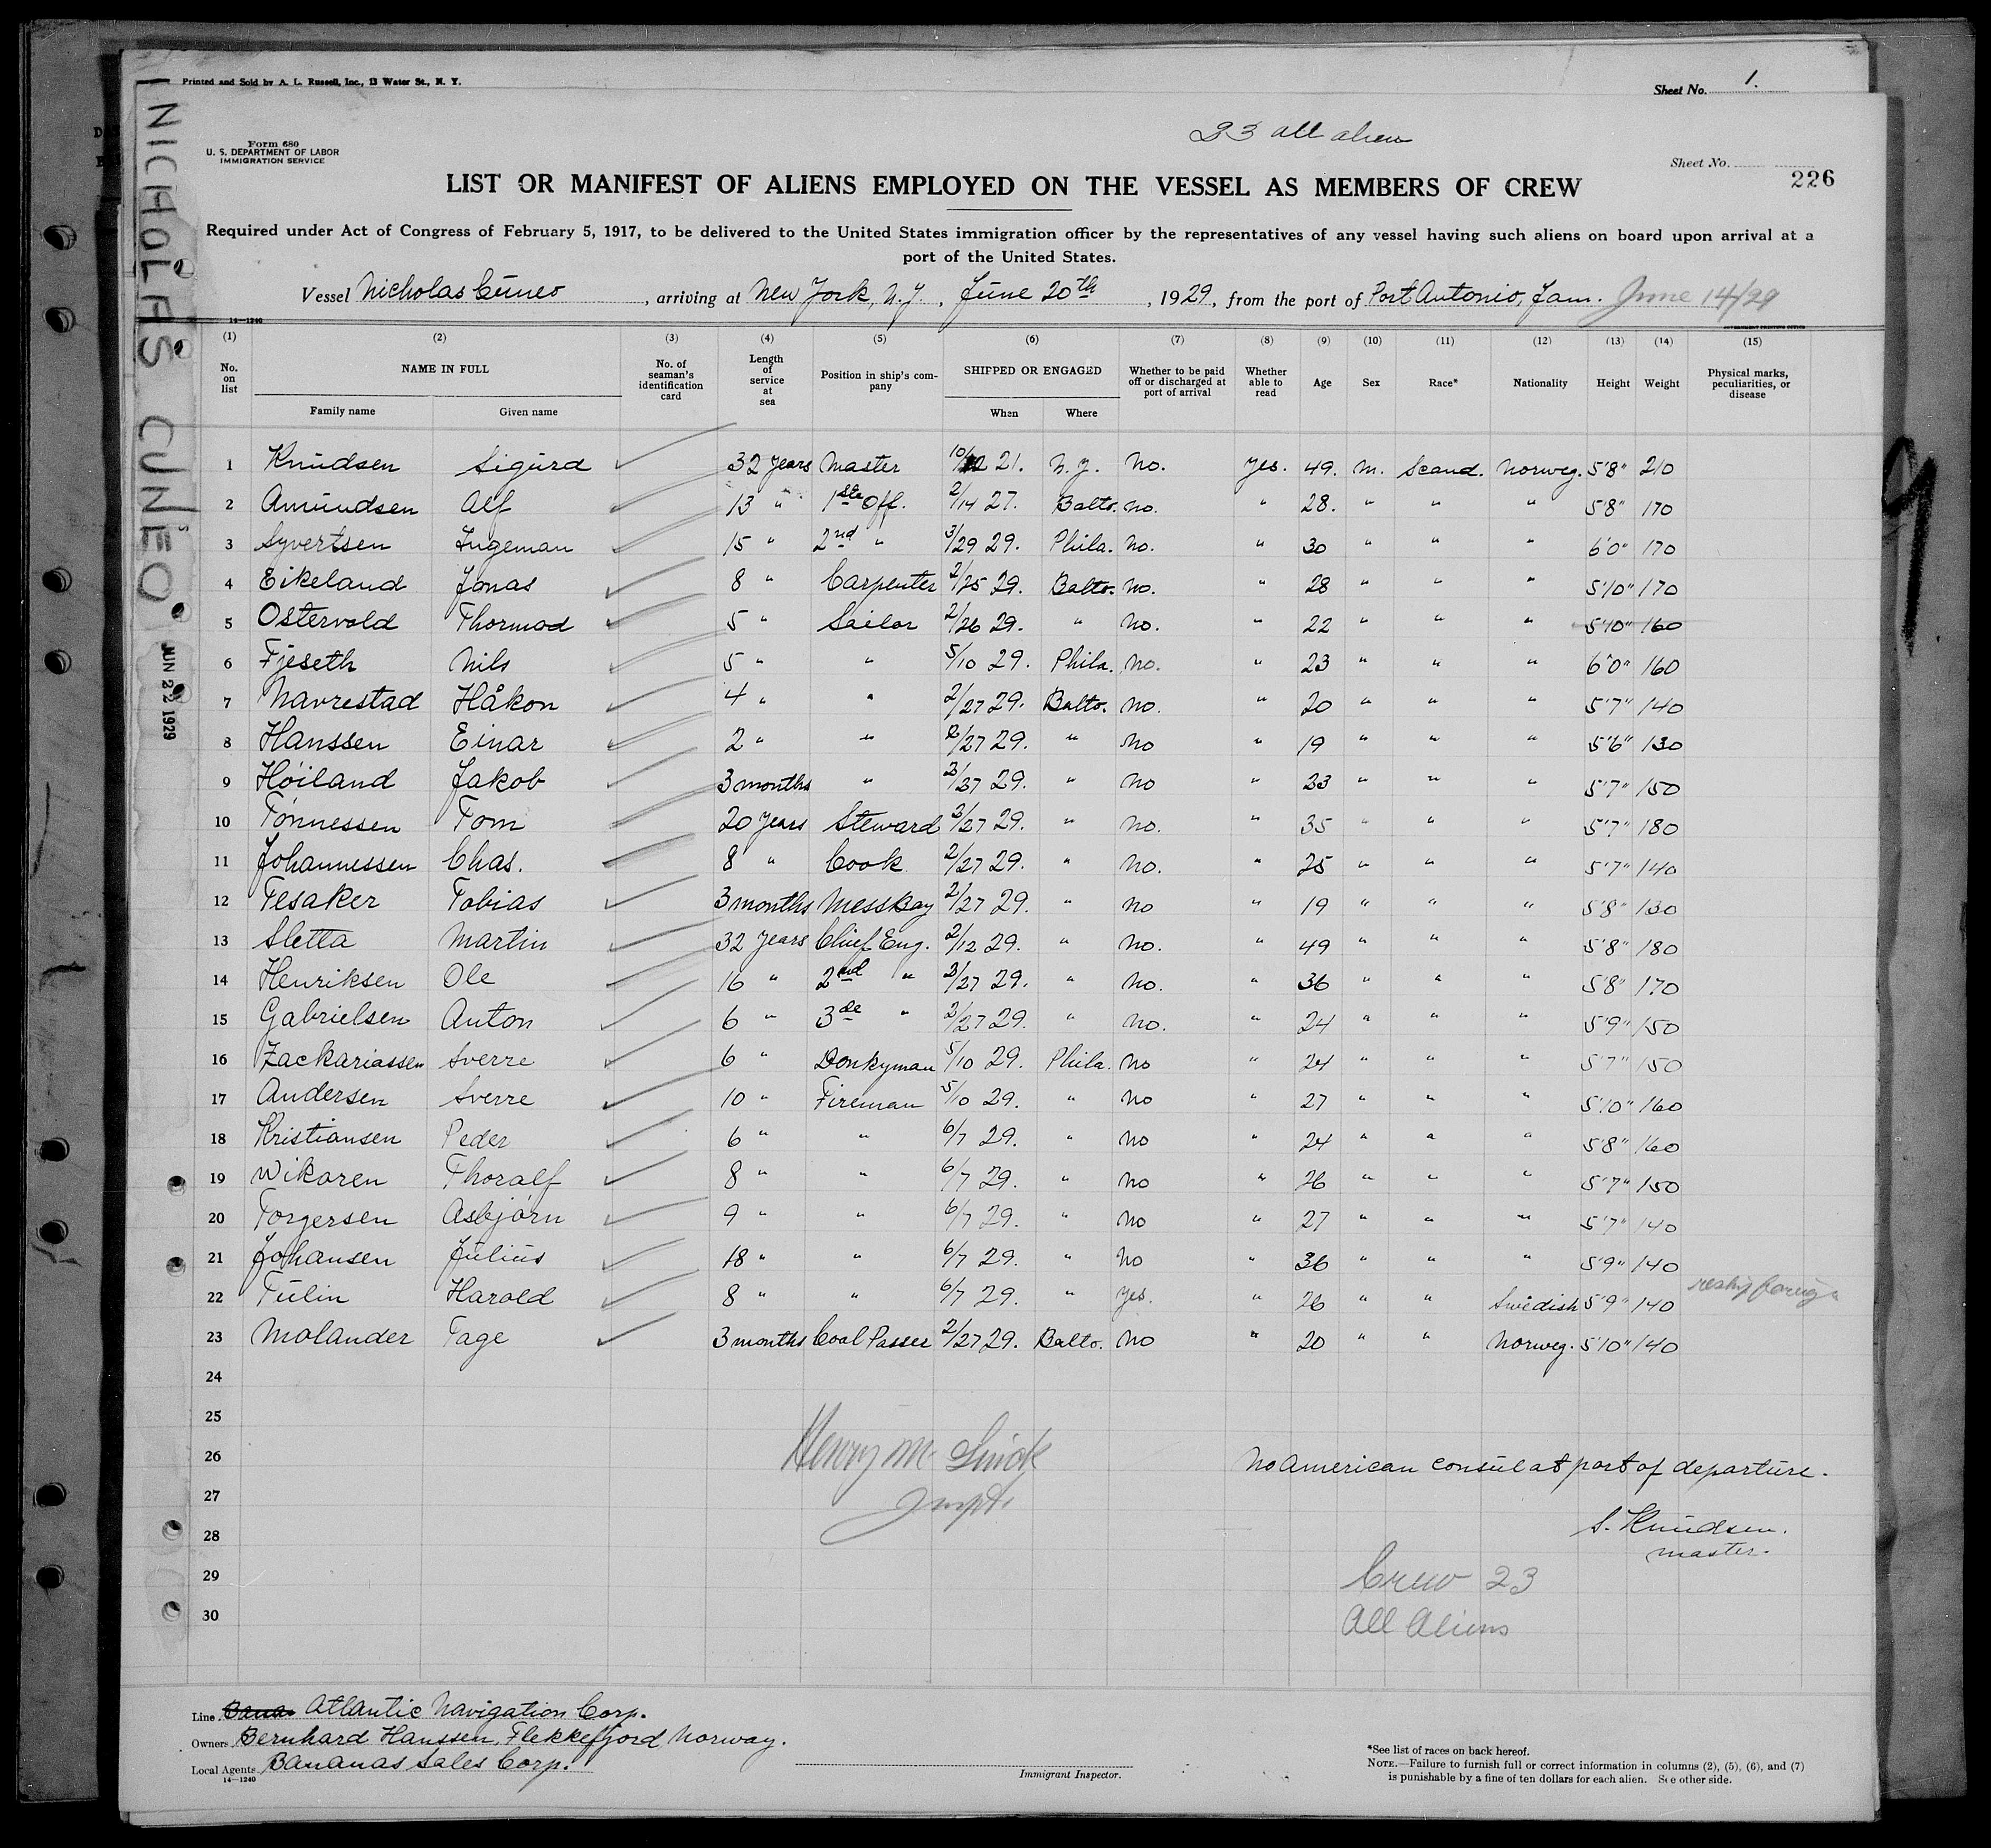 Printed and Sold by A. L. Russell, Inc., 13 Water St., N. Y.
Sheet No. 1.
23 all alien
Form 680
U. S. DEPARTMENT OF LABOR
IMMIGRATION SERVICE
Sheet No.
226
LIST OR MANIFEST OF ALIENS EMPLOYED ON THE VESSEL AS MEMBERS OF CREW
Required under Act of Congress of February 5, 1917, to be delivered to the United States immigration officer by the representatives of any vessel having such aliens on board upon arrival at a
port of the United States.
Vessel Nicholas Cuneo, arriving at New York, N.Y., June 20th, 1929, from the port of Port Antonio, Jam. June 14/29
NICHOLAS CUNEO
JUN 22 1929
14—1240
(1) (2) (3) (4) (5) (6) (7) (8) (9) (10) (11) (12) (13) (14) (15)
No. on list NAME IN FULL No. of seaman's identification card Length of service at sea Position in ship's company SHIPPED OR ENGAGED Whether to be paid off or discharged at port of arrival Whether able to read Age Sex Race* Nationality Height Weight Physical marks, peculiarities, or disease
Family name Given name When Where
1 Knudsen Sigurd 32 years Master 10/12 21. N.Y. No. yes. 49. M. Scand. Norweg. 5'8" 210
2 Amundsen Alf 13 " 1ste Off. 2/14 27. Balto. No. " 28. " " " 5'8" 170
3 Syvertsen Ingeman 15 " 2nd " 3/29 29. Phila. No. " 30 " " " 6'0" 170
4 Eikeland Jonas 8 " Carpenter 2/25 29. Balto. No. " 28 " " " 5'10" 170
5 Ostervold Thormod 5 " Sailor 2/26 29. " No. " 22 " " " 5'10" 160
6 Fjeseth Nils 5 " " 5/10 29. Phila. No. " 23 " " " 6'0" 160
7 Navrestad Håkon 4 " " 2/27 29. Balto. No. " 20 " " " 5'7" 140
8 Hanssen Einar 2 " " 2/27 29. " No " 19 " " " 5'6" 130
9 Høiland Jakob 3 months " 2/27 29. " No " 23 " " " 5'7" 150
10 Tønnessen Tom 20 years Steward 2/27 29. " No. " 35 " " " 5'7" 180
11 Johannessen Chas. 8 " Cook 2/27 29. " No. " 25 " " " 5'7" 140
12 Tesaker Tobias 3 months Messboy 2/27 29. " No " 19 " " " 5'8" 130
13 Sletta Martin 32 years Chief Eng. 2/12 29. " No. " 49 " " " 5'8" 180
14 Henriksen Ole 16 " 2nd " 2/27 29. " No. " 36 " " " 5'8" 170
15 Gabrielsen Anton 6 " 3de " 2/27 29. " No. " 24 " " " 5'9" 150
16 Zackariassen Sverre 6 " Donkyman 5/10 29. Phila. No " 24 " " " 5'7" 150
17 Andersen Sverre 10 " Fireman 5/10 29. " No " 27 " " " 5'10" 160
18 Kristiansen Peder 6 " " 6/7 29. " No " 24 " " " 5'8" 160
19 Wikoren Thoralf 8 " " 6/7 29. " No " 26 " " " 5'7" 150
20 Torgersen Asbjørn 9 " " 6/7 29. " No " 27 " " " 5'7" 140
21 Johansen Julius 18 " " 6/7 29. " No " 36 " " " 5'9" 140
22 Tulin Harold 8 " " 6/7 29. " yes. " 26 " " Swedish 5'9" 140 reship foreign
23 Molander Tage 3 months Coal Passer 2/27 29. Balto. No " 20 " " Norweg. 5'10" 140
24
25
26
27
28
29
30
Henry M.
Inspt.
No American consul at port of departure.
S. Knudsen.
Master.
Crew 23
All Aliens
Line Atlantic Navigation Corp.
Owners Bernhard Hanssen, Flekkefjord, Norway.
Local Agents Bananas Sales Corp.
14—1240
Immigrant Inspector.
*See list of races on back hereof.
NOTE.—Failure to furnish full or correct information in columns (2), (5), (6), and (7)
is punishable by a fine of ten dollars for each alien. See other side.